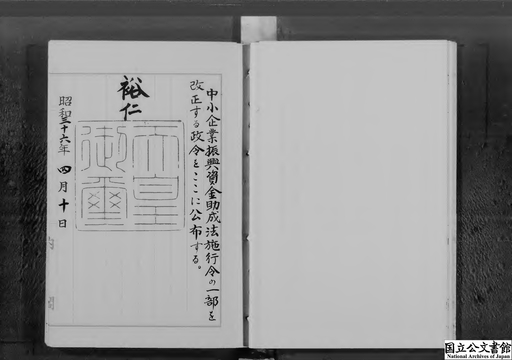 中小企業振興資金助成法施行令の一部を
改正する政令をここに公布する。
裕仁
天皇
御璽
昭和三十六年四月十日
国立公文書館
National Archives of Japan